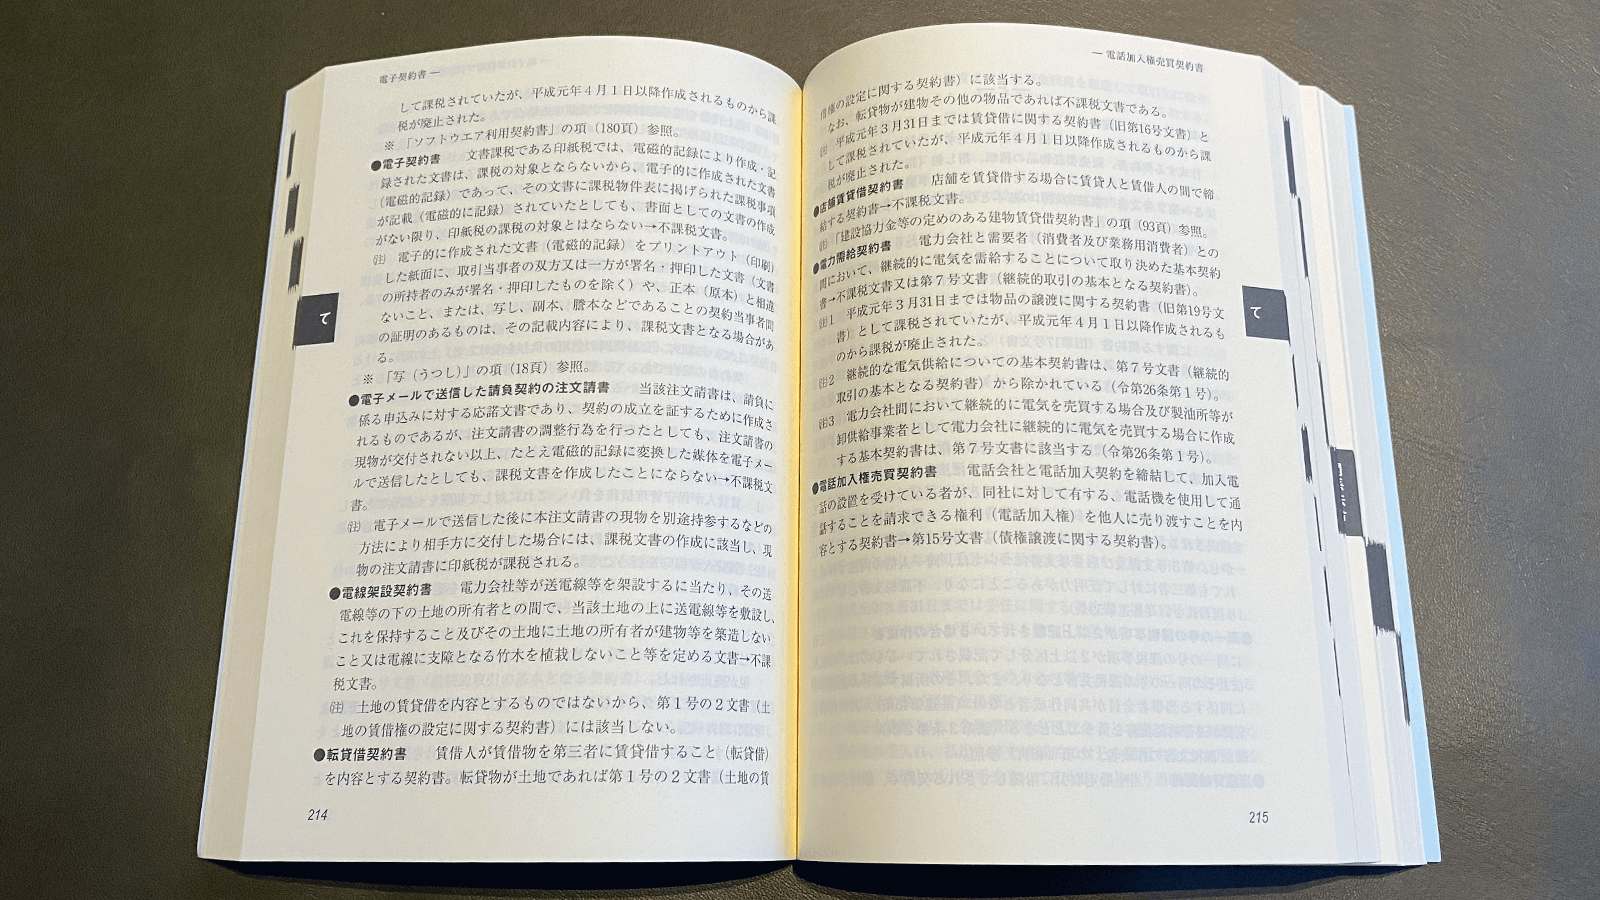 電子契約書 ―
して課税されていたが、平成元年４月１日以降作成されるものから課
税が廃止された。
※　「ソフトウエア利用契約書」の項（180頁）参照。
●電子契約書　　文書課税である印紙税では、電磁的記録により作成・記
録された文書は、課税の対象とならないから、電子的に作成された文書
（電磁的記録）であって、その文書に課税物件表に掲げられた課税事項
が記載（電磁的に記録）されていたとしても、書面としての文書の作成
がない限り、印紙税の課税の対象とはならない→不課税文書。
㊟　電子的に作成された文書（電磁的記録）をプリントアウト（印刷）
した紙面に、取引当事者の双方又は一方が署名・押印した文書（文書
の所持者のみが署名・押印したものを除く）や、正本（原本）と相違
ないこと、または、写し、副本、謄本などであることの契約当事者間
の証明のあるものは、その記載内容により、課税文書となる場合があ
る。
※　「写（うつし）」の項（18頁）参照。
●電子メールで送信した請負契約の注文請書　　当該注文請書は、請負に
係る申込みに対する応諾文書であり、契約の成立を証するために作成さ
れるものであるが、注文請書の調整行為を行ったとしても、注文請書の
現物が交付されない以上、たとえ電磁的記録に変換した媒体を電子メー
ルで送信したとしても、課税文書を作成したことにならない→不課税文
書。
㊟　電子メールで送信した後に本注文請書の現物を別途持参するなどの
方法により相手方に交付した場合には、課税文書の作成に該当し、現
物の注文請書に印紙税が課税される。
●電線架設契約書　　電力会社等が送電線等を架設するに当たり、その送
電線等の下の土地の所有者との間で、当該土地の上に送電線等を敷設し、
これを保持すること及びその土地に土地の所有者が建物等を築造しない
こと又は電線に支障となる竹木を植栽しないこと等を定める文書→不課
税文書。
㊟　土地の賃貸借を内容とするものではないから、第１号の２文書（土
地の賃借権の設定に関する契約書）には該当しない。
●転貸借契約書　　賃借人が賃借物を第三者に賃貸借すること（転貸借）
を内容とする契約書。転貸物が土地であれば第１号の２文書（土地の賃
て
214
― 電話加入権売買契約書
借権の設定に関する契約書）に該当する。
なお、転貸物が建物その他の物品であれば不課税文書である。
㊟　平成元年３月31日までは賃貸借に関する契約書（旧第16号文書）と
して課税されていたが、平成元年４月１日以降作成されるものから課
税が廃止された。
●店舗賃貸借契約書　　店舗を賃貸借する場合に賃貸人と賃借人の間で締
結する契約書→不課税文書。
㊟　「建設協力金等の定めのある建物賃貸借契約書」の項（93頁）参照。
●電力需給契約書　　電力会社と需要者（消費者及び業務用消費者）との
間において、継続的に電気を需給することについて取り決めた基本契約
書→不課税文書又は第７号文書（継続的取引の基本となる契約書）。
㊟１　平成元年３月31日までは物品の譲渡に関する契約書（旧第19号文
書）として課税されていたが、平成元年４月１日以降作成されるも
のから課税が廃止された。
㊟２　継続的な電気供給についての基本契約書は、第７号文書（継続的
取引の基本となる契約書）から除かれている（令第26条第１号）。
㊟３　電力会社間において継続的に電気を売買する場合及び製油所等が
卸供給事業者として電力会社に継続的に電気を売買する場合に作成
する基本契約書は、第７号文書に該当する（令第26条第１号）。
●電話加入権売買契約書　　電話会社と電話加入契約を締結して、加入電
話の設置を受けている者が、同社に対して有する、電話機を使用して通
話することを請求できる権利（電話加入権）を他人に売り渡すことを内
容とする契約書→第15号文書（債権譲渡に関する契約書）。
て
215